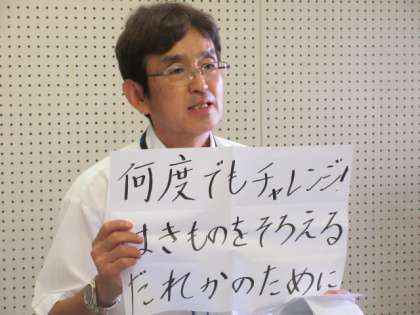 何度でもチャレンジ!
はきものをそろえる
だれかのために